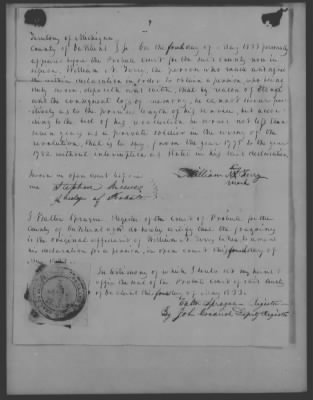 Territory of Michigan
County of Oakland Ss. On the fourth day of May 1833 personally
appeared before the Probate Court for the said County now in
session, William N. Terry, the person who made and signed
the within declaration in order to obtain a pension who being
duly sworn, deposeth and saith, that by reason of old age
and the consequent loss of memory, he cannot swear positively
as to the precise length of his service, but according
to the best of his recollection he served not less than
seven years as a private soldier in the army of the
revolution, that is to say, from the year 1775 to the year
1782 without interruption as stated in his said declaration.
Sworn in open court before
me Stephen Reeves
Judge of Probate
William Terry
mark
I Register of the Court of Probate for the
County of Oakland do hereby certify that the foregoing
is the original affidavit of William N. Terry to
his declaration for a pension, in open court this fourth day of
May 1833.
In testimony whereof I have set my hand &
affix the seal of the Probate Court of said County
of Oakland this fourth day of May 1833.
Sprague Register
By John Deputy Register